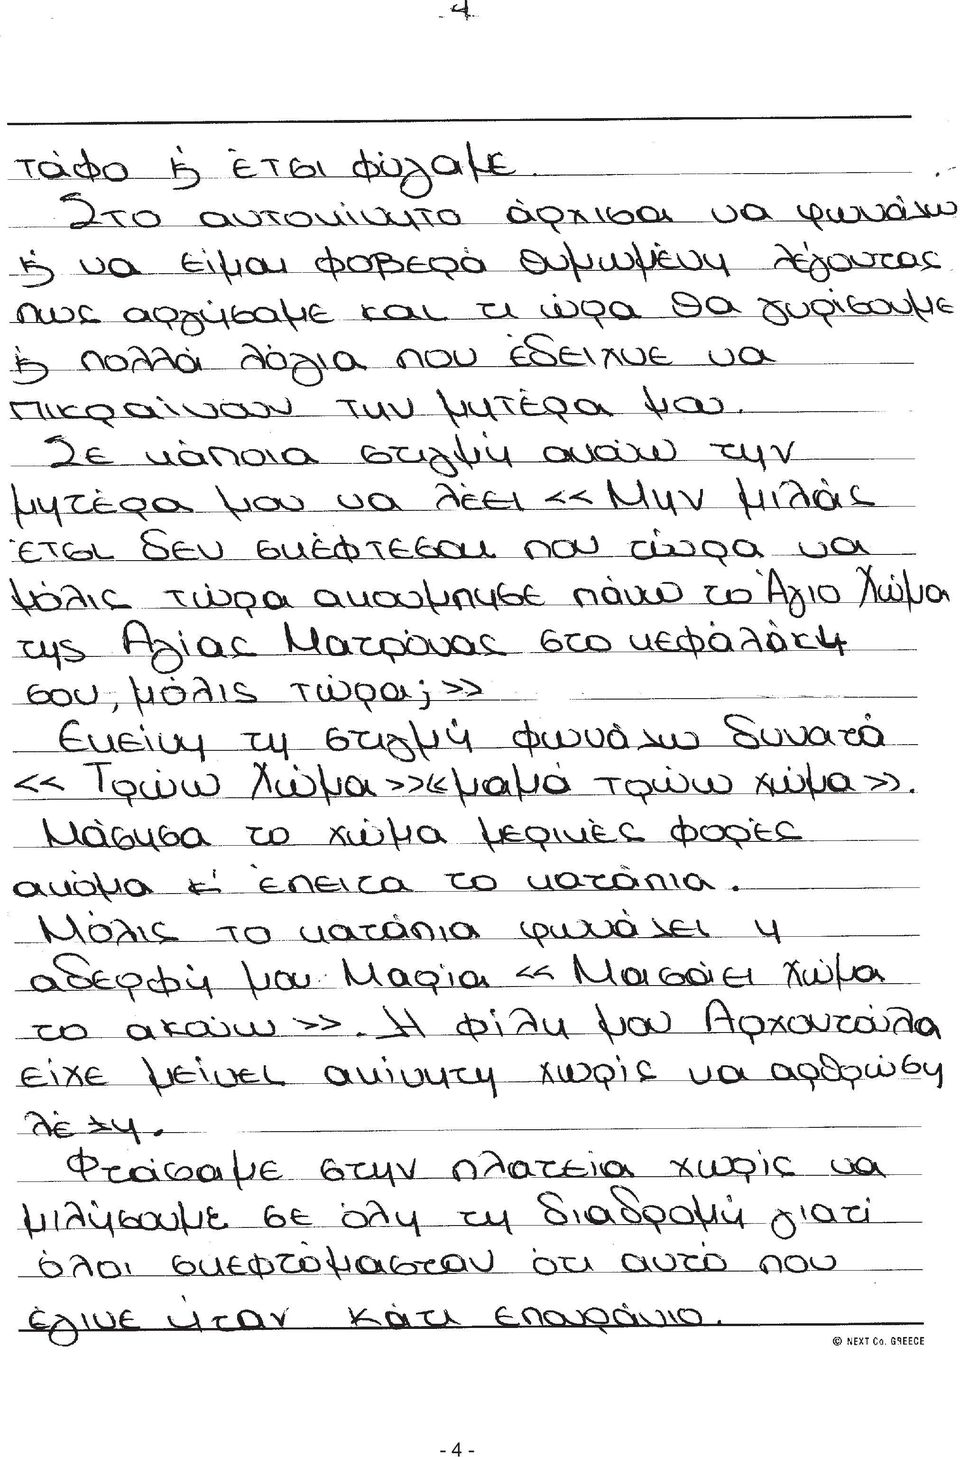 4
τάφο ϗ έτσι φύγαμε.
Στο αυτοκίνητο άρχισα να φωνάζω
ϗ να είμαι φοβερά θυμωμένη λέγοντας
πως αργήσαμε και τι ώρα θα γυρίσουμε
ϗ πολλά λόγια που έδειχνε να
πικραίνουν την μητέρα μου.
Σε κάποια στιγμή ακούω την
μητέρα μου να λέει << Μην μιλάς
έτσι δεν σκέφτεσαι που τώρα να
μόλις τώρα ακουμπησε πάνω το Άγιο Χώμα
της Αγίας Ματρόνας στο κεφάλάκη
σου, μόλις τώρα; >>
Εκείνη τη στιγμή φωνάζω δυνατά
<< Τρώω Χώμα >> << μαμά τρώω χώμα >>.
Μάσησα το χώμα μερικές φορές
ακόμα κ' έπειτα το κατάπια.
Μόλις το κατάπια φωνάζει η
αδερφή μου Μαρία << Μασάει Χώμα
το ακούω >>. Η φίλη μου Αρχοντούλα
είχε μείνει ακίνητη χωρίς να αρθρώση
λέξη.
Φτάσαμε στην πλατεία χωρίς να
μιλήσουμε σε όλη τη διαδρομή γιατί
όλοι σκεφτόμασταν ότι αυτό που
έγινε ήταν κάτι επουράνιο.
© NEXT Co. GREECE
- 4 -